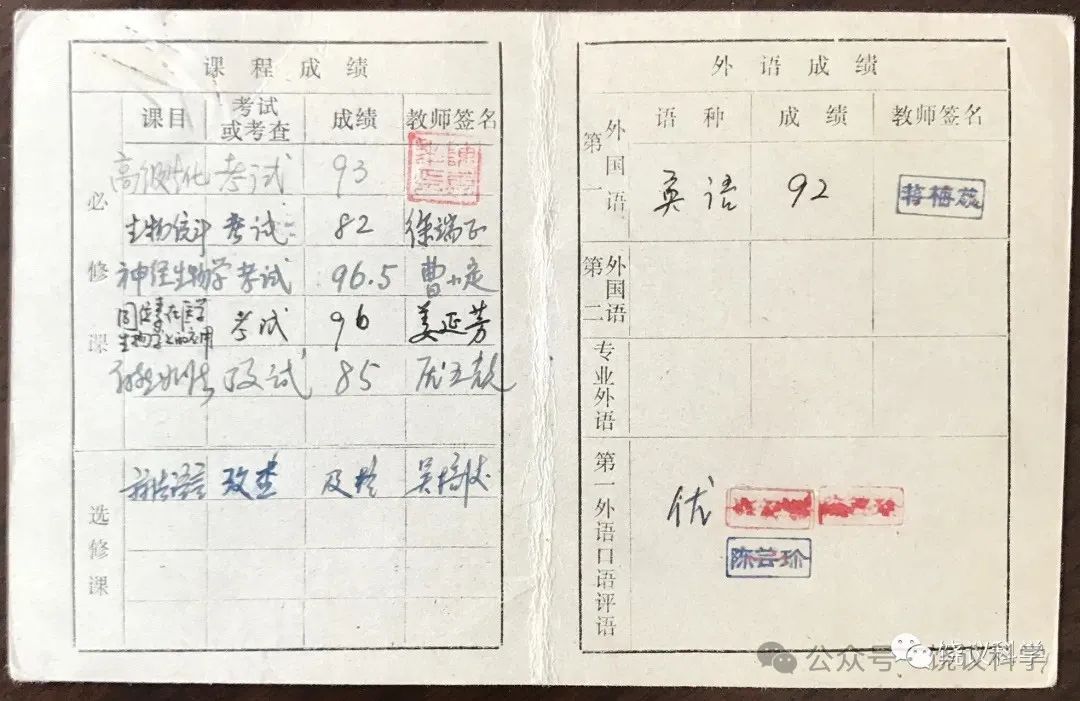 课程成绩
课目 考试或考查 成绩 教师签名
必修课
高级生化 考试 93
生物统计 考试 82 徐端正
神经生物学 考试 96.5 曹小定
同位素在医学生物学上的应用 考试 96 姜延芳
自然辩证法 考试 85
选修课
算法语言 考查 及格
外语成绩
语种 成绩 教师签名
第一外国语 英语 92 蒋梅蕊
第二外国语
专业外语
第一外语口语评语 优
陈芸珍
公众号·饶议科学
饶议科学